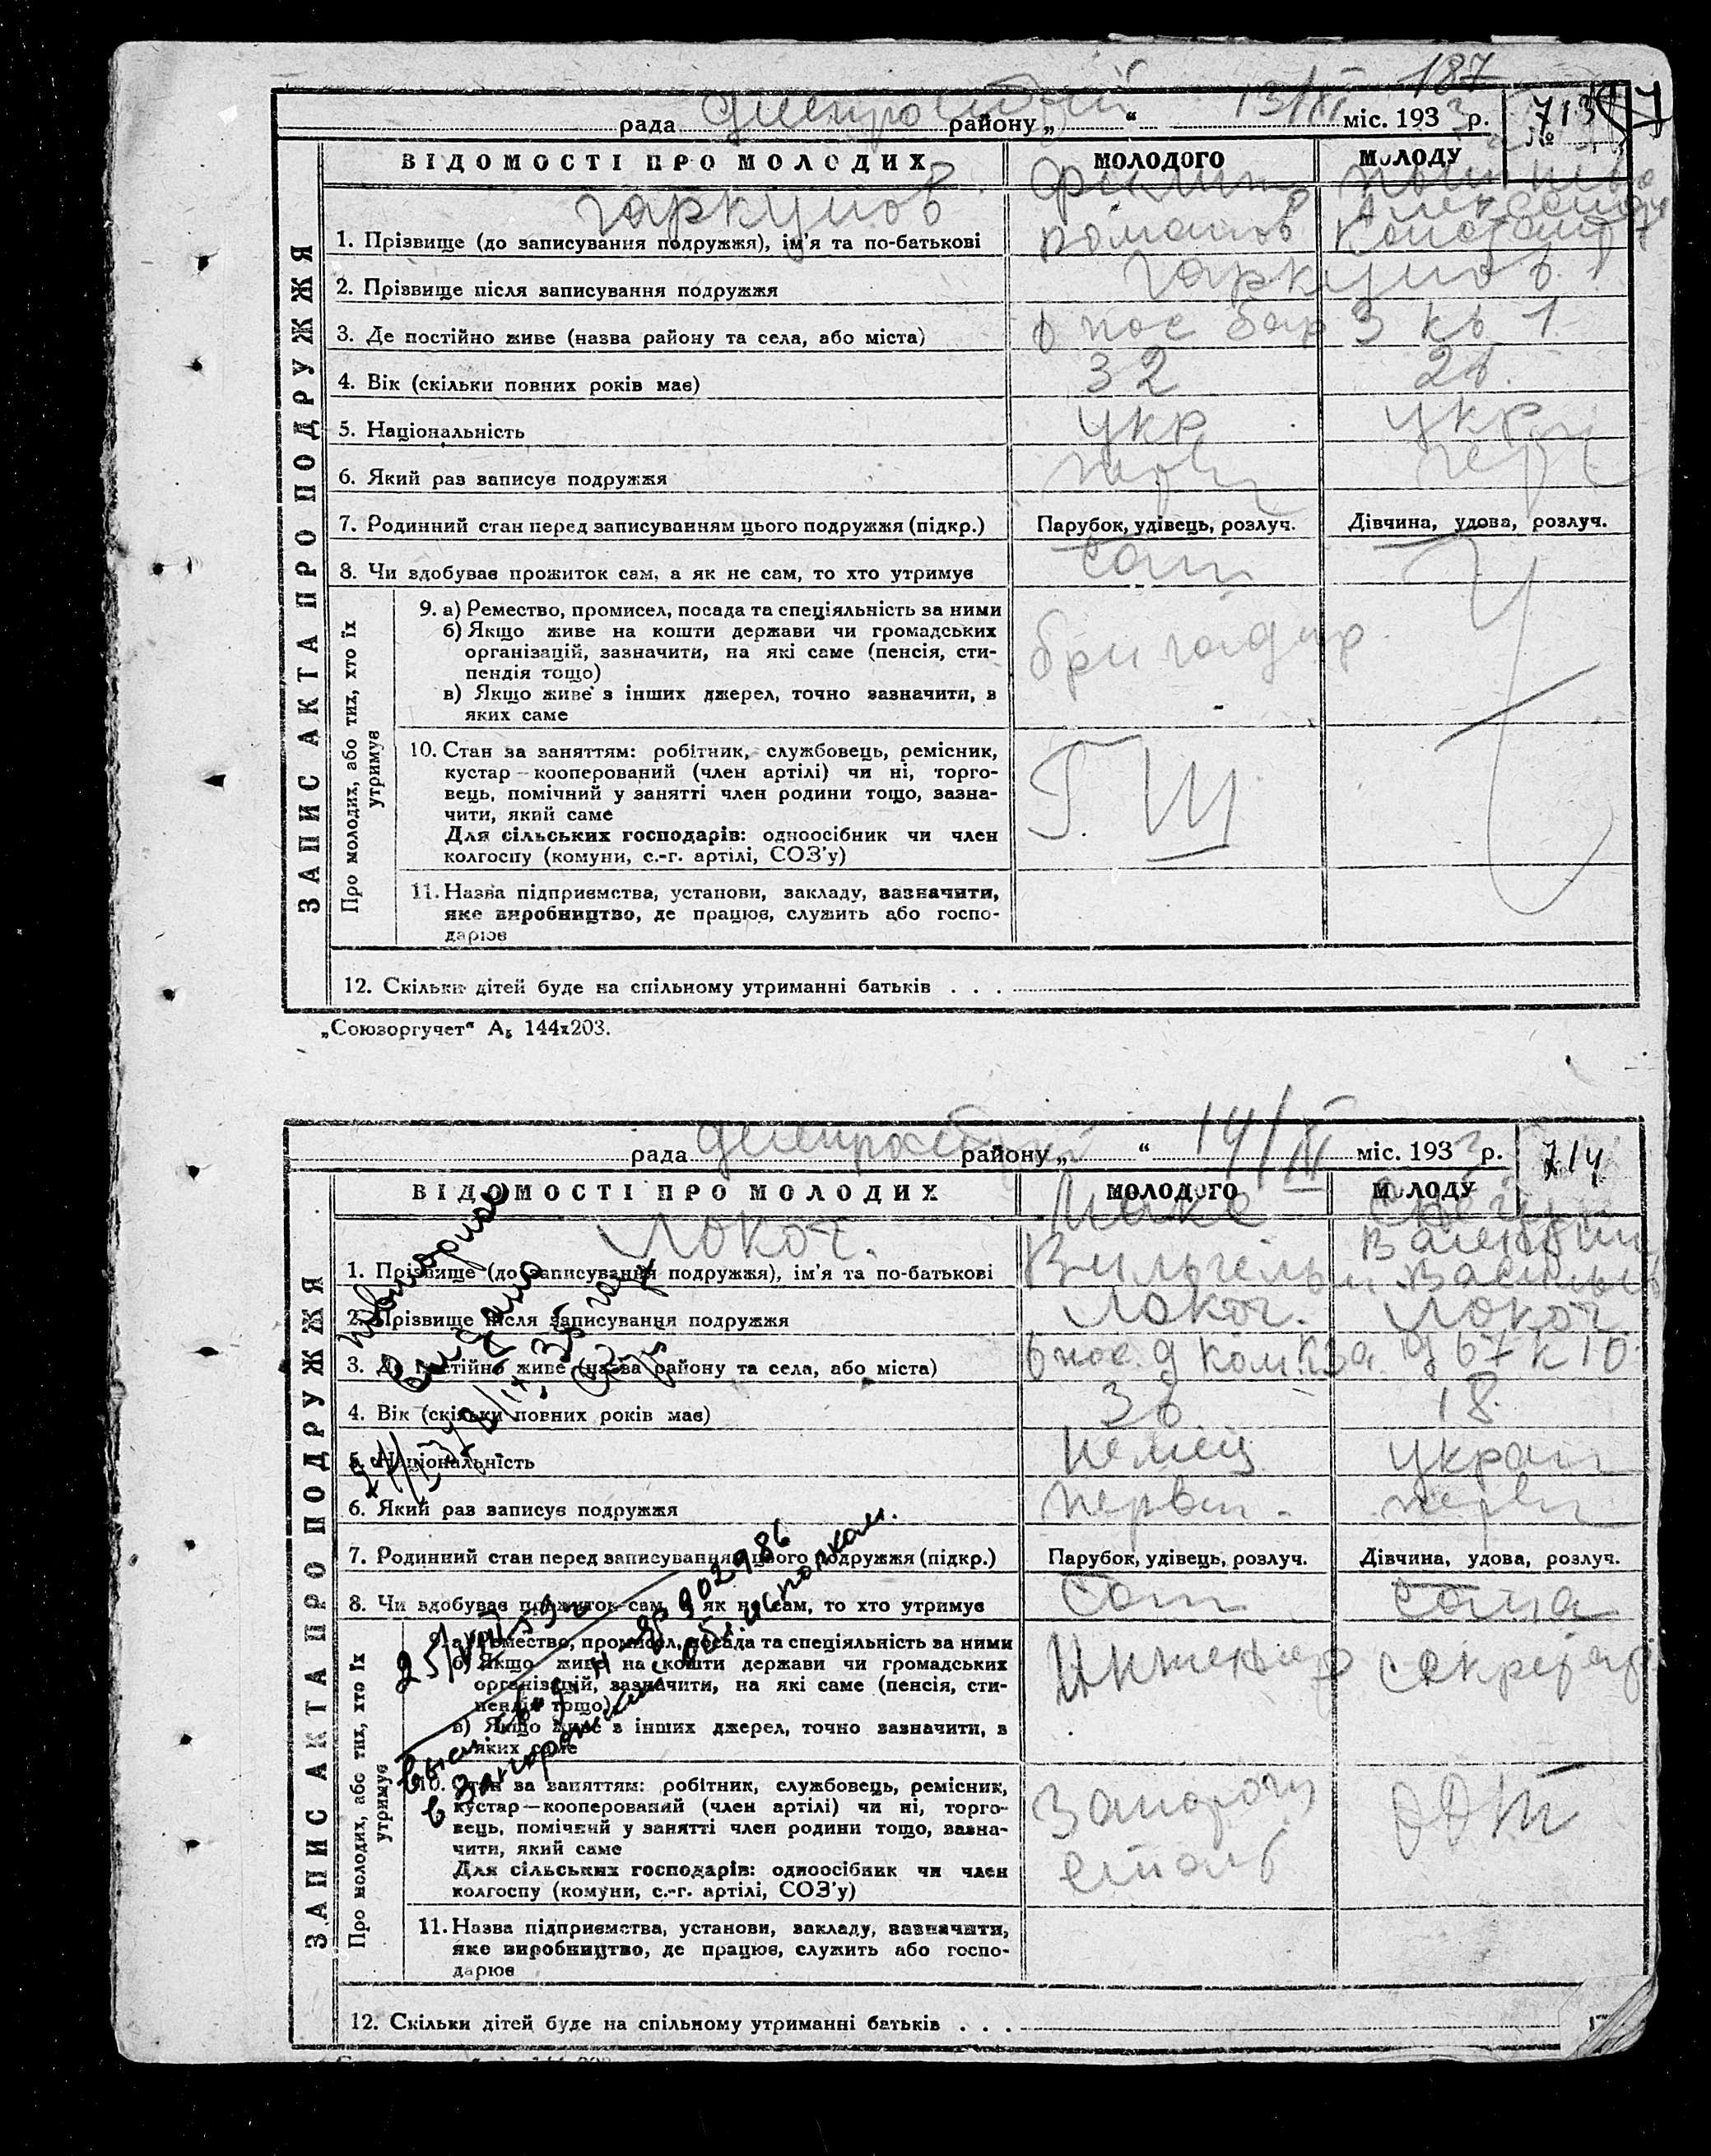 187
рада Днепростой району „ “ 13/XI міс. 1933 р. № 713
ВІДОМОСТІ ПРО МОЛОДИХ МОЛОДОГО МОЛОДУ
ЗАПИС АКТА ПРО ПОДРУЖЖЯ
Гаркушов
1. Прізвище (до записування подружжя), ім'я та по-батькові
2. Прізвище після записування подружжя
3. Де постійно живе (назва району та села, або міста) 6 пос бар 3 кв 1
4. Вік (скільки повних років має) 32 26.
5. Національність укр укр
6. Який раз записує подружжя перв перв
7. Родинний стан перед записуванням цього подружжя (підкр.) Парубок, удівець, розлуч. Дівчина, удова, розлуч.
8. Чи здобуває прожиток сам, а як не сам, то хто утримує сам
Про молодих, або тих, хто їх утримує
9. а) Ремество, промисел, посада та спеціяльність за ними
б) Якщо живе на кошти держави чи громадських
організацій, зазначити, на які саме (пенсія, сти-
пендія тощо)
бригадир
в) Якщо живе з інших джерел, точно зазначити, в
яких саме
10. Стан за заняттям: робітник, службовець, ремісник,
кустар—кооперований (член артілі) чи ні, торго-
вець, помічний у занятті член родини тощо, зазна-
чити, який саме
Г. Ш
Для сільських господарів: одноосібник чи член
колгоспу (комуни, с.-г. артілі, СОЗ'у)
11. Назва підприємства, установи, закладу, зазначити,
яке виробництво, де працює, служить або госпо-
дарює
12. Скільки дітей буде на спільному утриманні батьків . . .
„Союзоргучет“ А5 144х203.
рада Днепрострой району „ “ 14/XI міс. 1933 р. 714
ВІДОМОСТІ ПРО МОЛОДИХ МОЛОДОГО МОЛОДУ
ЗАПИС АКТА ПРО ПОДРУЖЖЯ
Локот. Макс
Валентин
1. Прізвище (до записування подружжя), ім'я та по-батькові Вильгельм Василь
2. Прізвище після записування подружжя Локот. Локот
3. Де постійно живе (назва району та села, або міста) 6 пос. д 67 к 10
4. Вік (скільки повних років має) 36 18.
5. Національність немец украин
6. Який раз записує подружжя первы перв
7. Родинний стан перед записуванням цього подружжя (підкр.) Парубок, удівець, розлуч. Дівчина, удова, розлуч.
8. Чи здобуває прожиток сам, а як не сам, то хто утримує сам сама
Про молодих, або тих, хто їх утримує
9. а) Ремество, промисел, посада та спеціяльність за ними
б) Якщо живе на кошти держави чи громадських
організацій, зазначити, на які саме (пенсія, сти-
пендія тощо)
Инженер секретарь
в) Якщо живе з інших джерел, точно зазначити, в
яких саме
10. Стан за заняттям: робітник, службовець, ремісник,
кустар—кооперований (член артілі) чи ні, торго-
вець, помічний у занятті член родини тощо, зазна-
чити, який саме
Запорож
сталь
Для сільських господарів: одноосібник чи член
колгоспу (комуни, с.-г. артілі, СОЗ'у)
11. Назва підприємства, установи, закладу, зазначити,
яке виробництво, де працює, служить або госпо-
дарює
12. Скільки дітей буде на спільному утриманні батьків . . .
повторное
выдано
25/VIII 59 г
902986
в Запорожский обл. исполком.